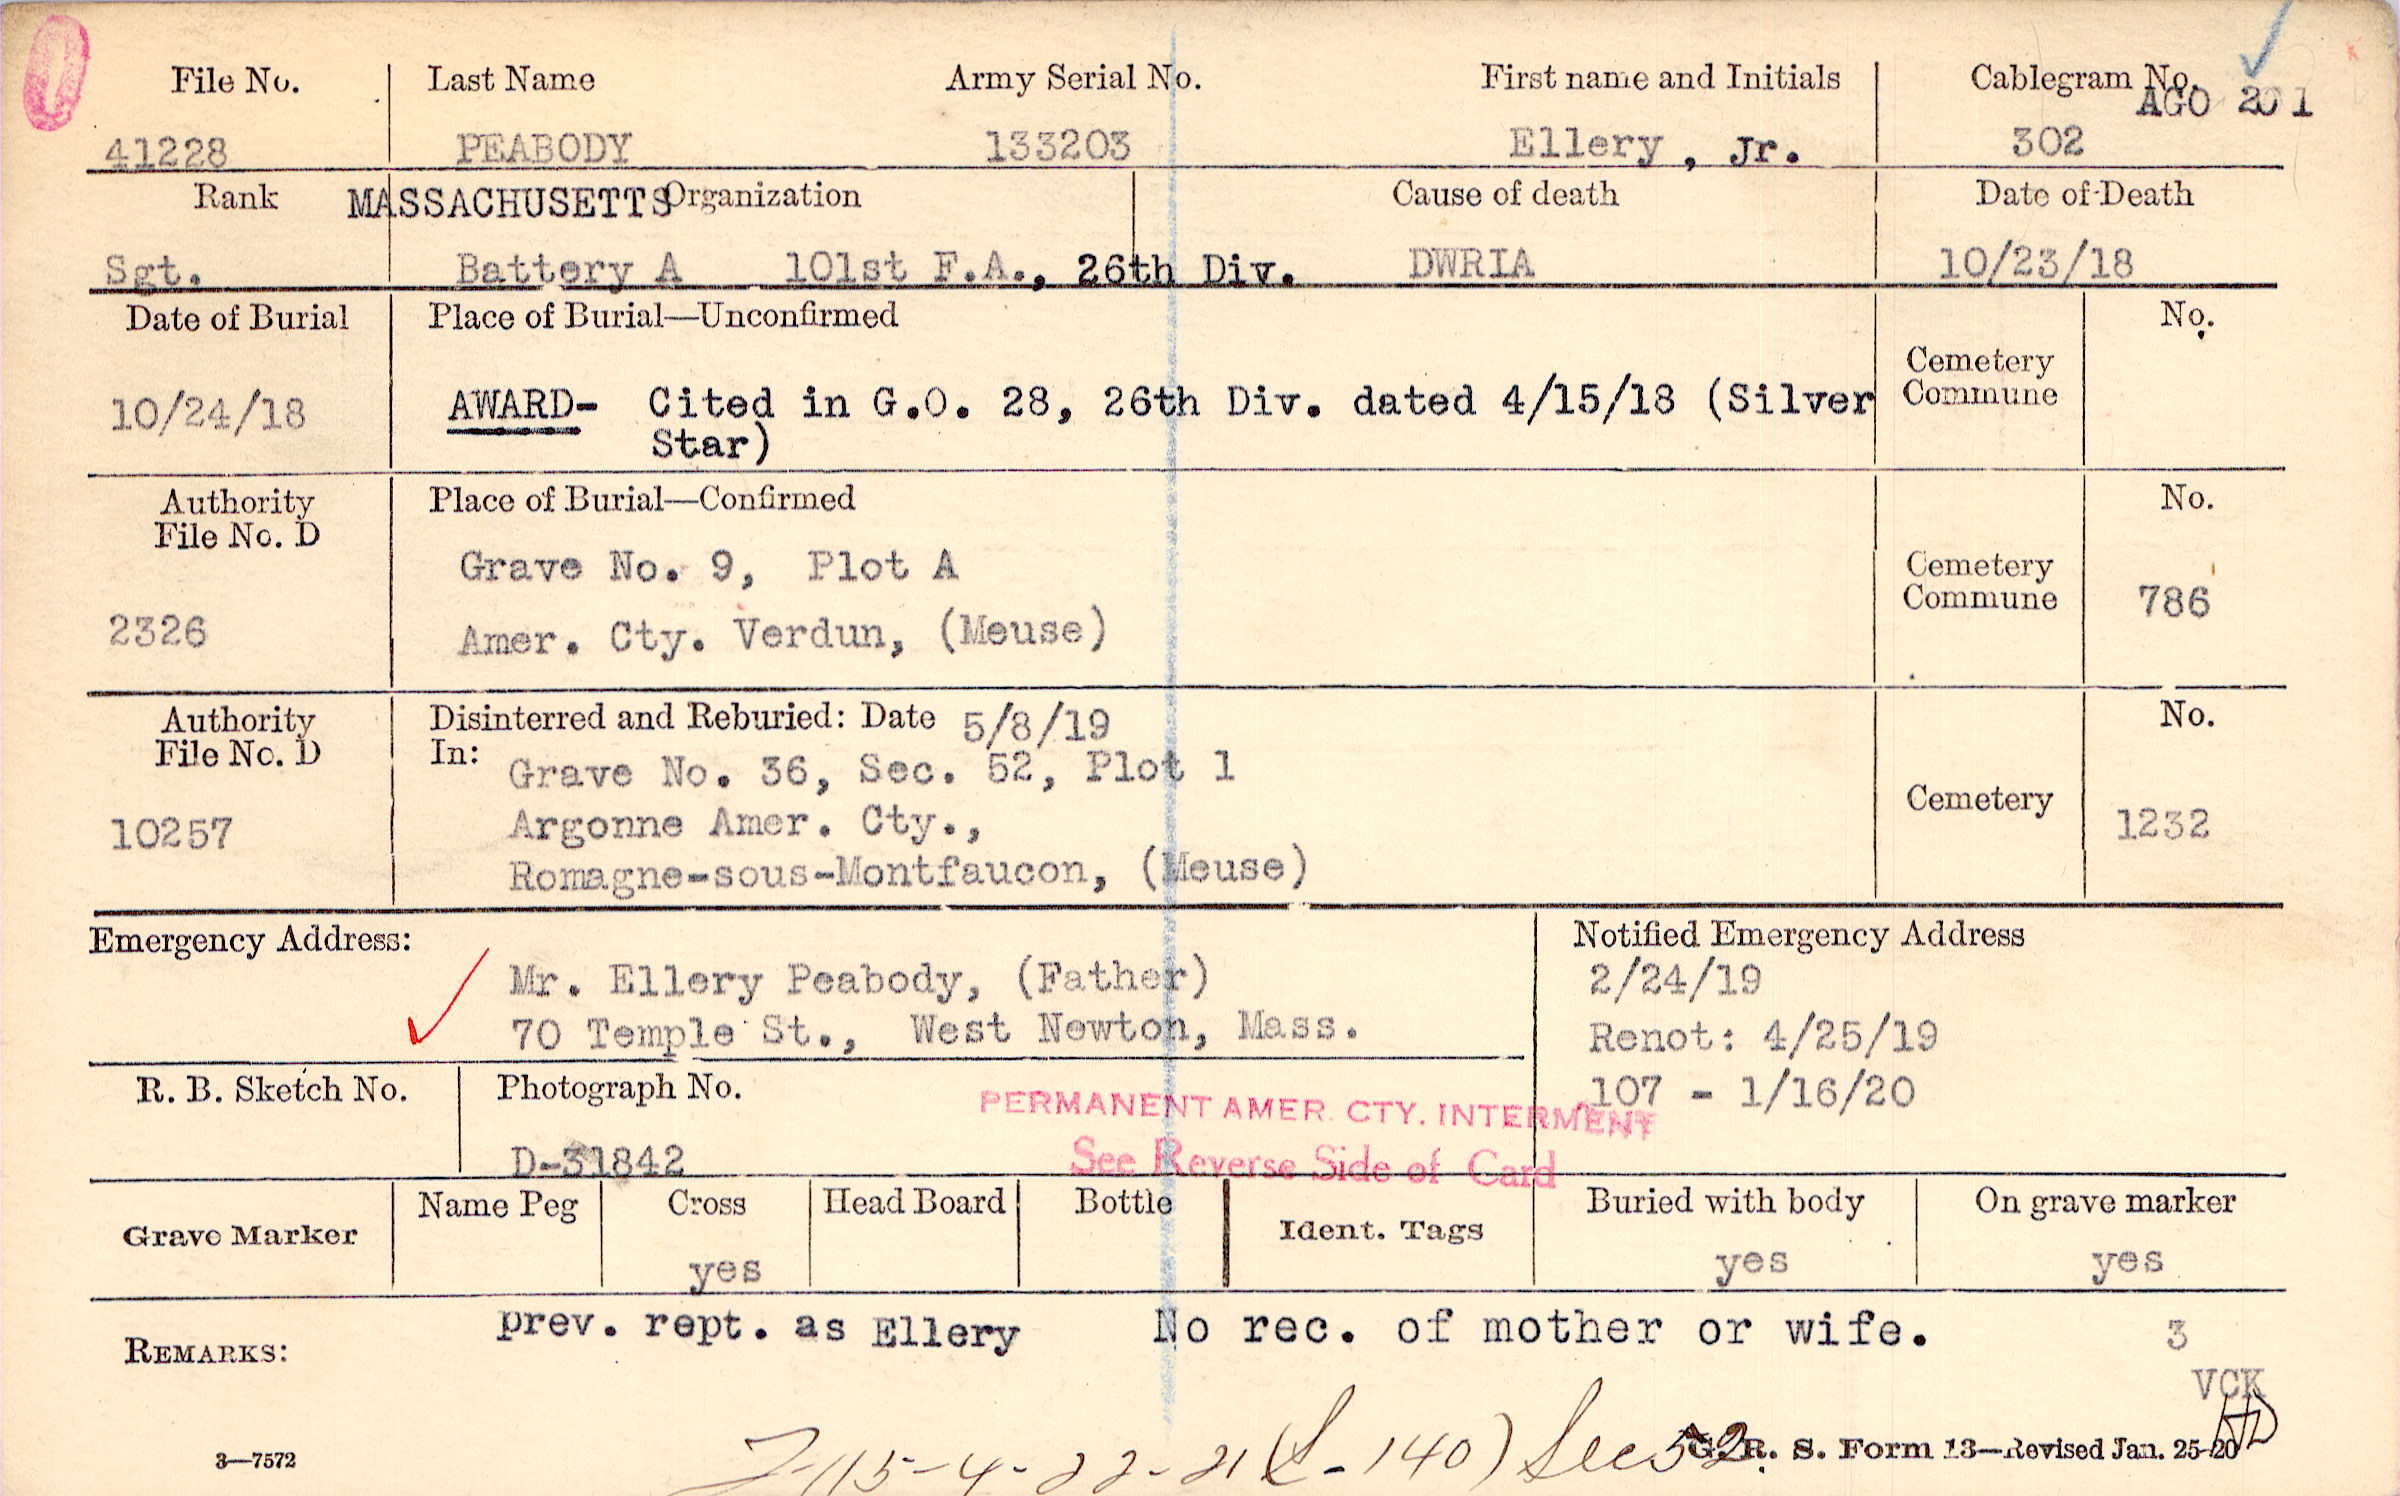 File No. Last Name Army Serial No. First name and Initials Cablegram No.
AGO 201
41228 PEABODY 133203 Ellery, Jr. 302
Rank MASSACHUSETTS Organization Cause of death Date of Death
Sgt. Battery A 101st F.A., 26th Div. DWRIA 10/23/18
Date of Burial Place of Burial—Unconfirmed No.
Cemetery
Commune
10/24/18 AWARD- Cited in G.O. 28, 26th Div. dated 4/15/18 (Silver
Star)
Authority Place of Burial—Confirmed No.
File No. D
Grave No. 9, Plot A Cemetery
Commune 786
2326 Amer. Cty. Verdun, (Meuse)
Authority Disinterred and Reburied: Date 5/8/19 No.
File No. D In:
Grave No. 36, Sec. 52, Plot 1
Cemetery
10257 Argonne Amer. Cty., 1232
Romagne-sous-Montfaucon, (Meuse)
Emergency Address: Notified Emergency Address
Mr. Ellery Peabody, (Father) 2/24/19
70 Temple St., West Newton, Mass. Renot: 4/25/19
R. B. Sketch No. Photograph No. 107 - 1/16/20
PERMANENT AMER. CTY. INTERMENT
D-31842 See Reverse Side of Card
Grave Marker Name Peg Cross Head Board Bottle Ident. Tags Buried with body On grave marker
yes yes yes
REMARKS: prev. rept. as Ellery No rec. of mother or wife. 3
VCK
3—7572 115-4-22-21 (L-140) Sec 52 G. R. S. Form 13—Revised Jan. 25-20